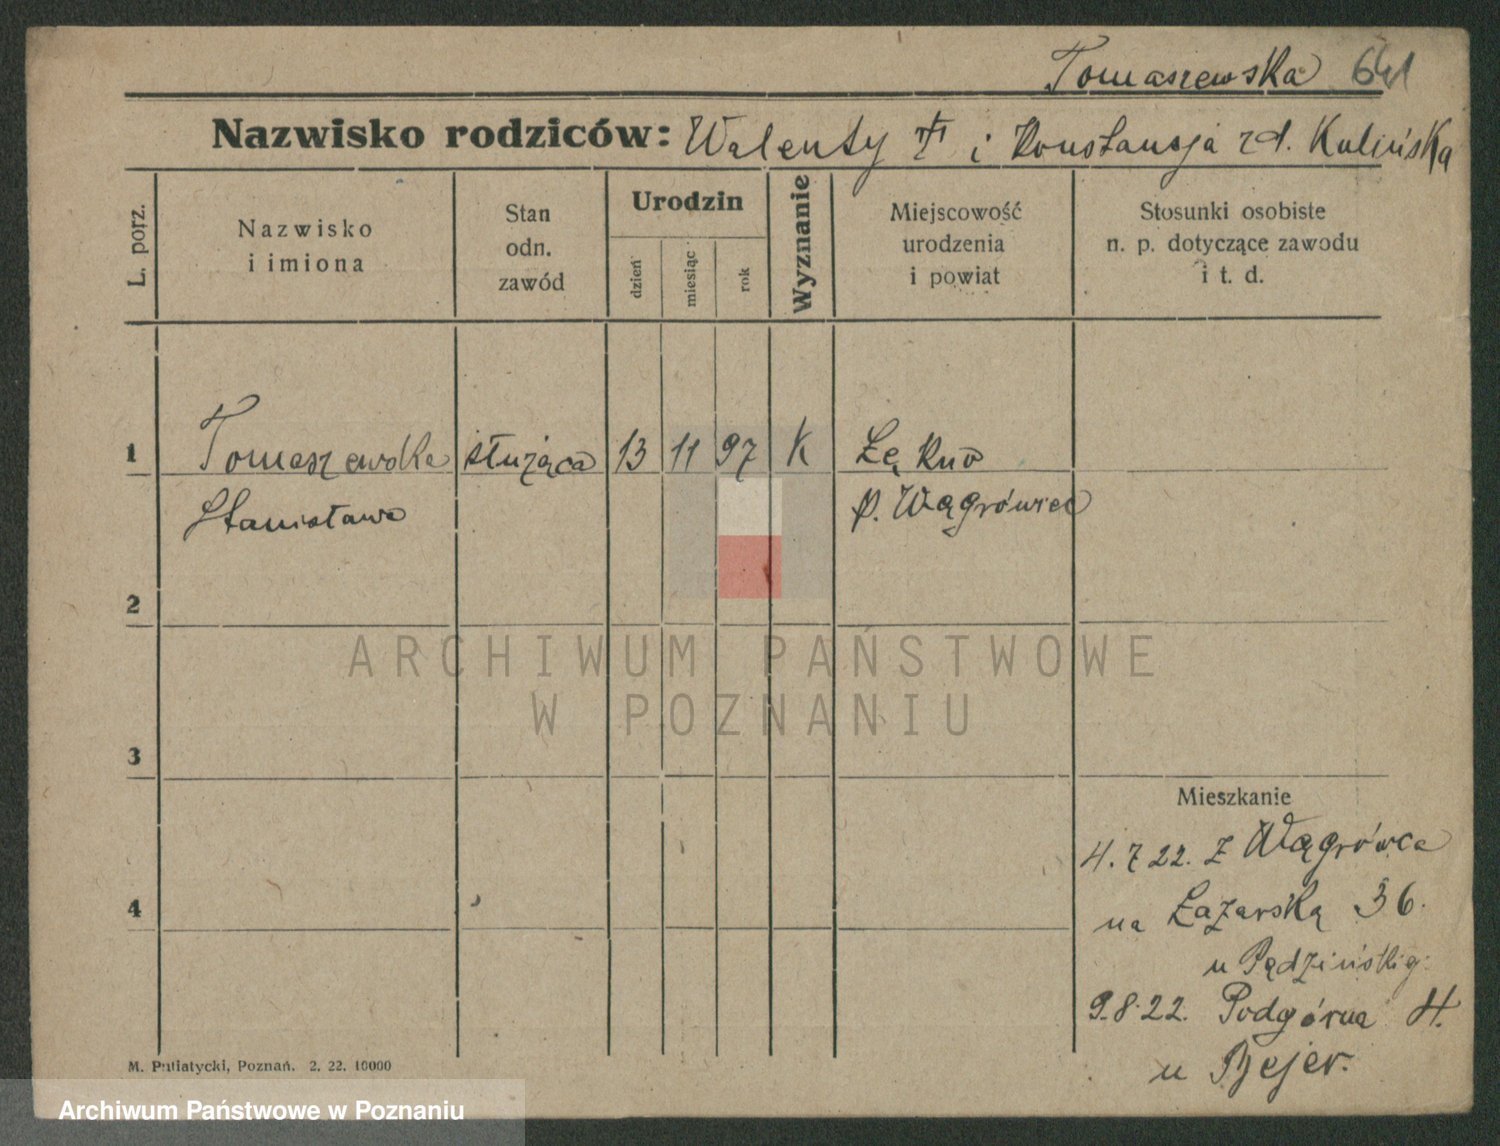 Tomaszewska 641
Nazwisko rodziców: Walenty † i Konstancja zd. Kulińska
L. porz.
Nazwisko
i imiona
Stan
odn.
zawód
Urodzin
dzień
miesiąc
rok
Wyznanie
Miejscowość
urodzenia
i powiat
Stosunki osobiste
n. p. dotyczące zawodu
i t. d.
1 Tomaszewska służąca 13 11 97 K Łękno
Stanisława p. Wągrówiec
2
ARCHIWUM PAŃSTWOWE
W POZNANIU
3
Mieszkanie
4. 7 22. z Wągrówca
4
na Łazarską 36.
u Pędzińskig.
9.8.22. Podgórna 4.
u Bejer.
M. Putiatycki, Poznań. 2. 22. 10000
Archiwum Państwowe w Poznaniu